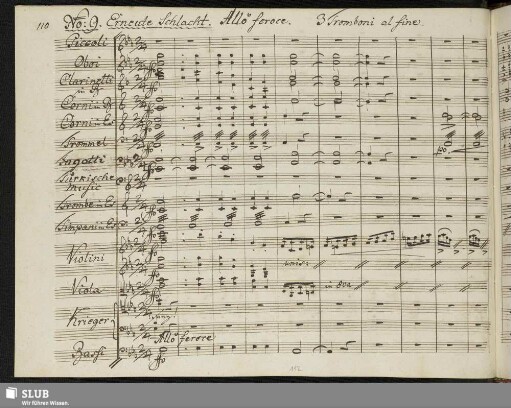 110 No: 9. Erneude Schlacht. Allo feroce. 3 Tromboni al fine
Piccoli
Oboi
Clarinetti
in B
Corni in B
Corni in Es
Trommel
Fagotti
Türkische
Music
Trombe in Es
Timpani in Es
Violini
unis:
Viola
in 8va
Krieger
Allo feroce
Bassi
SLUB
Wir führen Wissen.